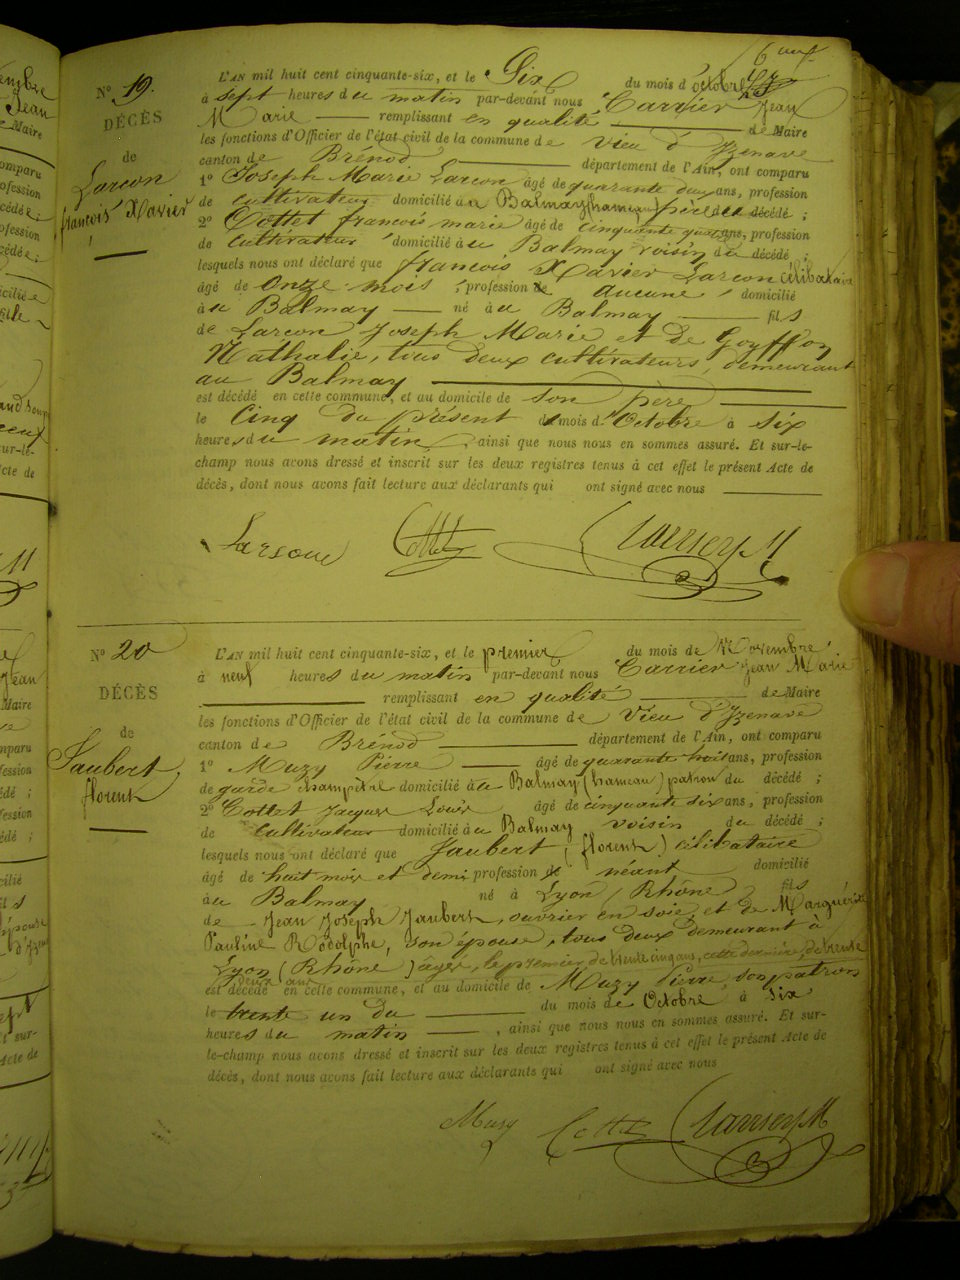 N° 19.
DÉCÈS
de
Larcon
françois Xavier
L'AN mil huit cent cinquante-six, et le Six du mois d'octobre
à sept heures du matin par-devant nous Carrier Jean
Marie remplissant en qualité de Maire
les fonctions d'Officier de l'état civil de la commune de Vieu d'Izenave
canton de Brénod département de l'Ain, ont comparu
1° Joseph Marie Larcon âgé de quarante deux ans, profession
de cultivateur domicilié au Balmay (hameau) père du décédé ;
2° Cottet françois marie âgé de cinquante ans, profession
de cultivateur domicilié au Balmay voisin du décédé ;
lesquels nous ont déclaré que françois Xavier Larcon célibataire
âgé de onze mois, profession de aucune domicilié
au Balmay né au Balmay fils
de Larcon Joseph Marie et de Goyffon
Nathalie, tous deux cultivateurs, demeurant
au Balmay
est décédé en cette commune, et au domicile de son père
le Cinq du présent du mois d'Octobre à six
heures du matin, ainsi que nous nous en sommes assuré. Et sur-le-
champ nous avons dressé et inscrit sur les deux registres tenus à cet effet le présent Acte de
décès, dont nous avons fait lecture aux déclarants qui ont signé avec nous
Larcon Cottet Carrier J M
N° 20
DÉCÈS
de
Jaubert
florent
L'AN mil huit cent cinquante-six, et le premier du mois de Novembre
à neuf heures du matin par-devant nous Carrier Jean Marie
remplissant en qualité de Maire
les fonctions d'Officier de l'état civil de la commune de Vieu d'Izenave
canton de Brénod département de l'Ain, ont comparu
1° Muzy Pierre âgé de quarante huit ans, profession
de garde champêtre domicilié au Balmay (hameau) patron du décédé ;
2° Cottet Jacques Louis âgé de cinquante six ans, profession
de cultivateur domicilié au Balmay voisin du décédé ;
lesquels nous ont déclaré que Jaubert (florent) célibataire
âgé de huit mois et demi profession de néant domicilié
au Balmay né à Lyon (Rhône) fils
de Jean Joseph Jaubert, ouvrier en soie, et de Marguerite
Pauline Rodolphe, son épouse, tous deux demeurant à
Lyon (Rhône) âgés, le premier de trente cinq ans, cette dernière, de trente
deux ans
est décédé en cette commune, et au domicile de Muzy Pierre, son patron
le trente un du du mois de Octobre à six
heures du matin, ainsi que nous nous en sommes assuré. Et sur-
le-champ nous avons dressé et inscrit sur les deux registres tenus à cet effet le présent Acte de
décès, dont nous avons fait lecture aux déclarants qui ont signé avec nous
Muzy Cottet Carrier J M